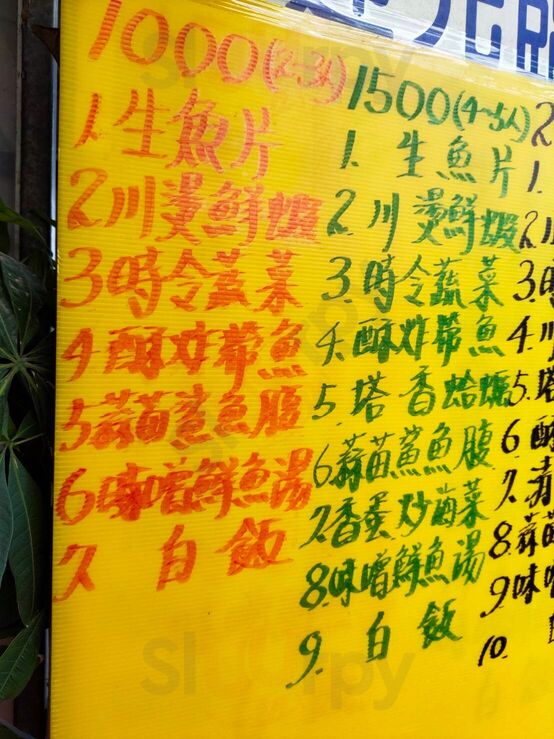 1000(2-3人)
1生魚片
2川燙鮮蝦
3時令蔬菜
4酥炸帶魚
5蒜苗鯊魚腹
6味噌鮮魚湯
7 白飯
1500(4~5人)
1. 生魚片
2 川燙鮮蝦
3.時令蔬菜
4.酥炸帶魚
5.塔香蛤蠣
6蒜苗鯊魚腹
7.香蛋炒海菜
8.味噌鮮魚湯
9. 白飯
2
1.
2川
3.時
4.川
5.塔
6酥
7.
8.蒜苗
9味噌
10.